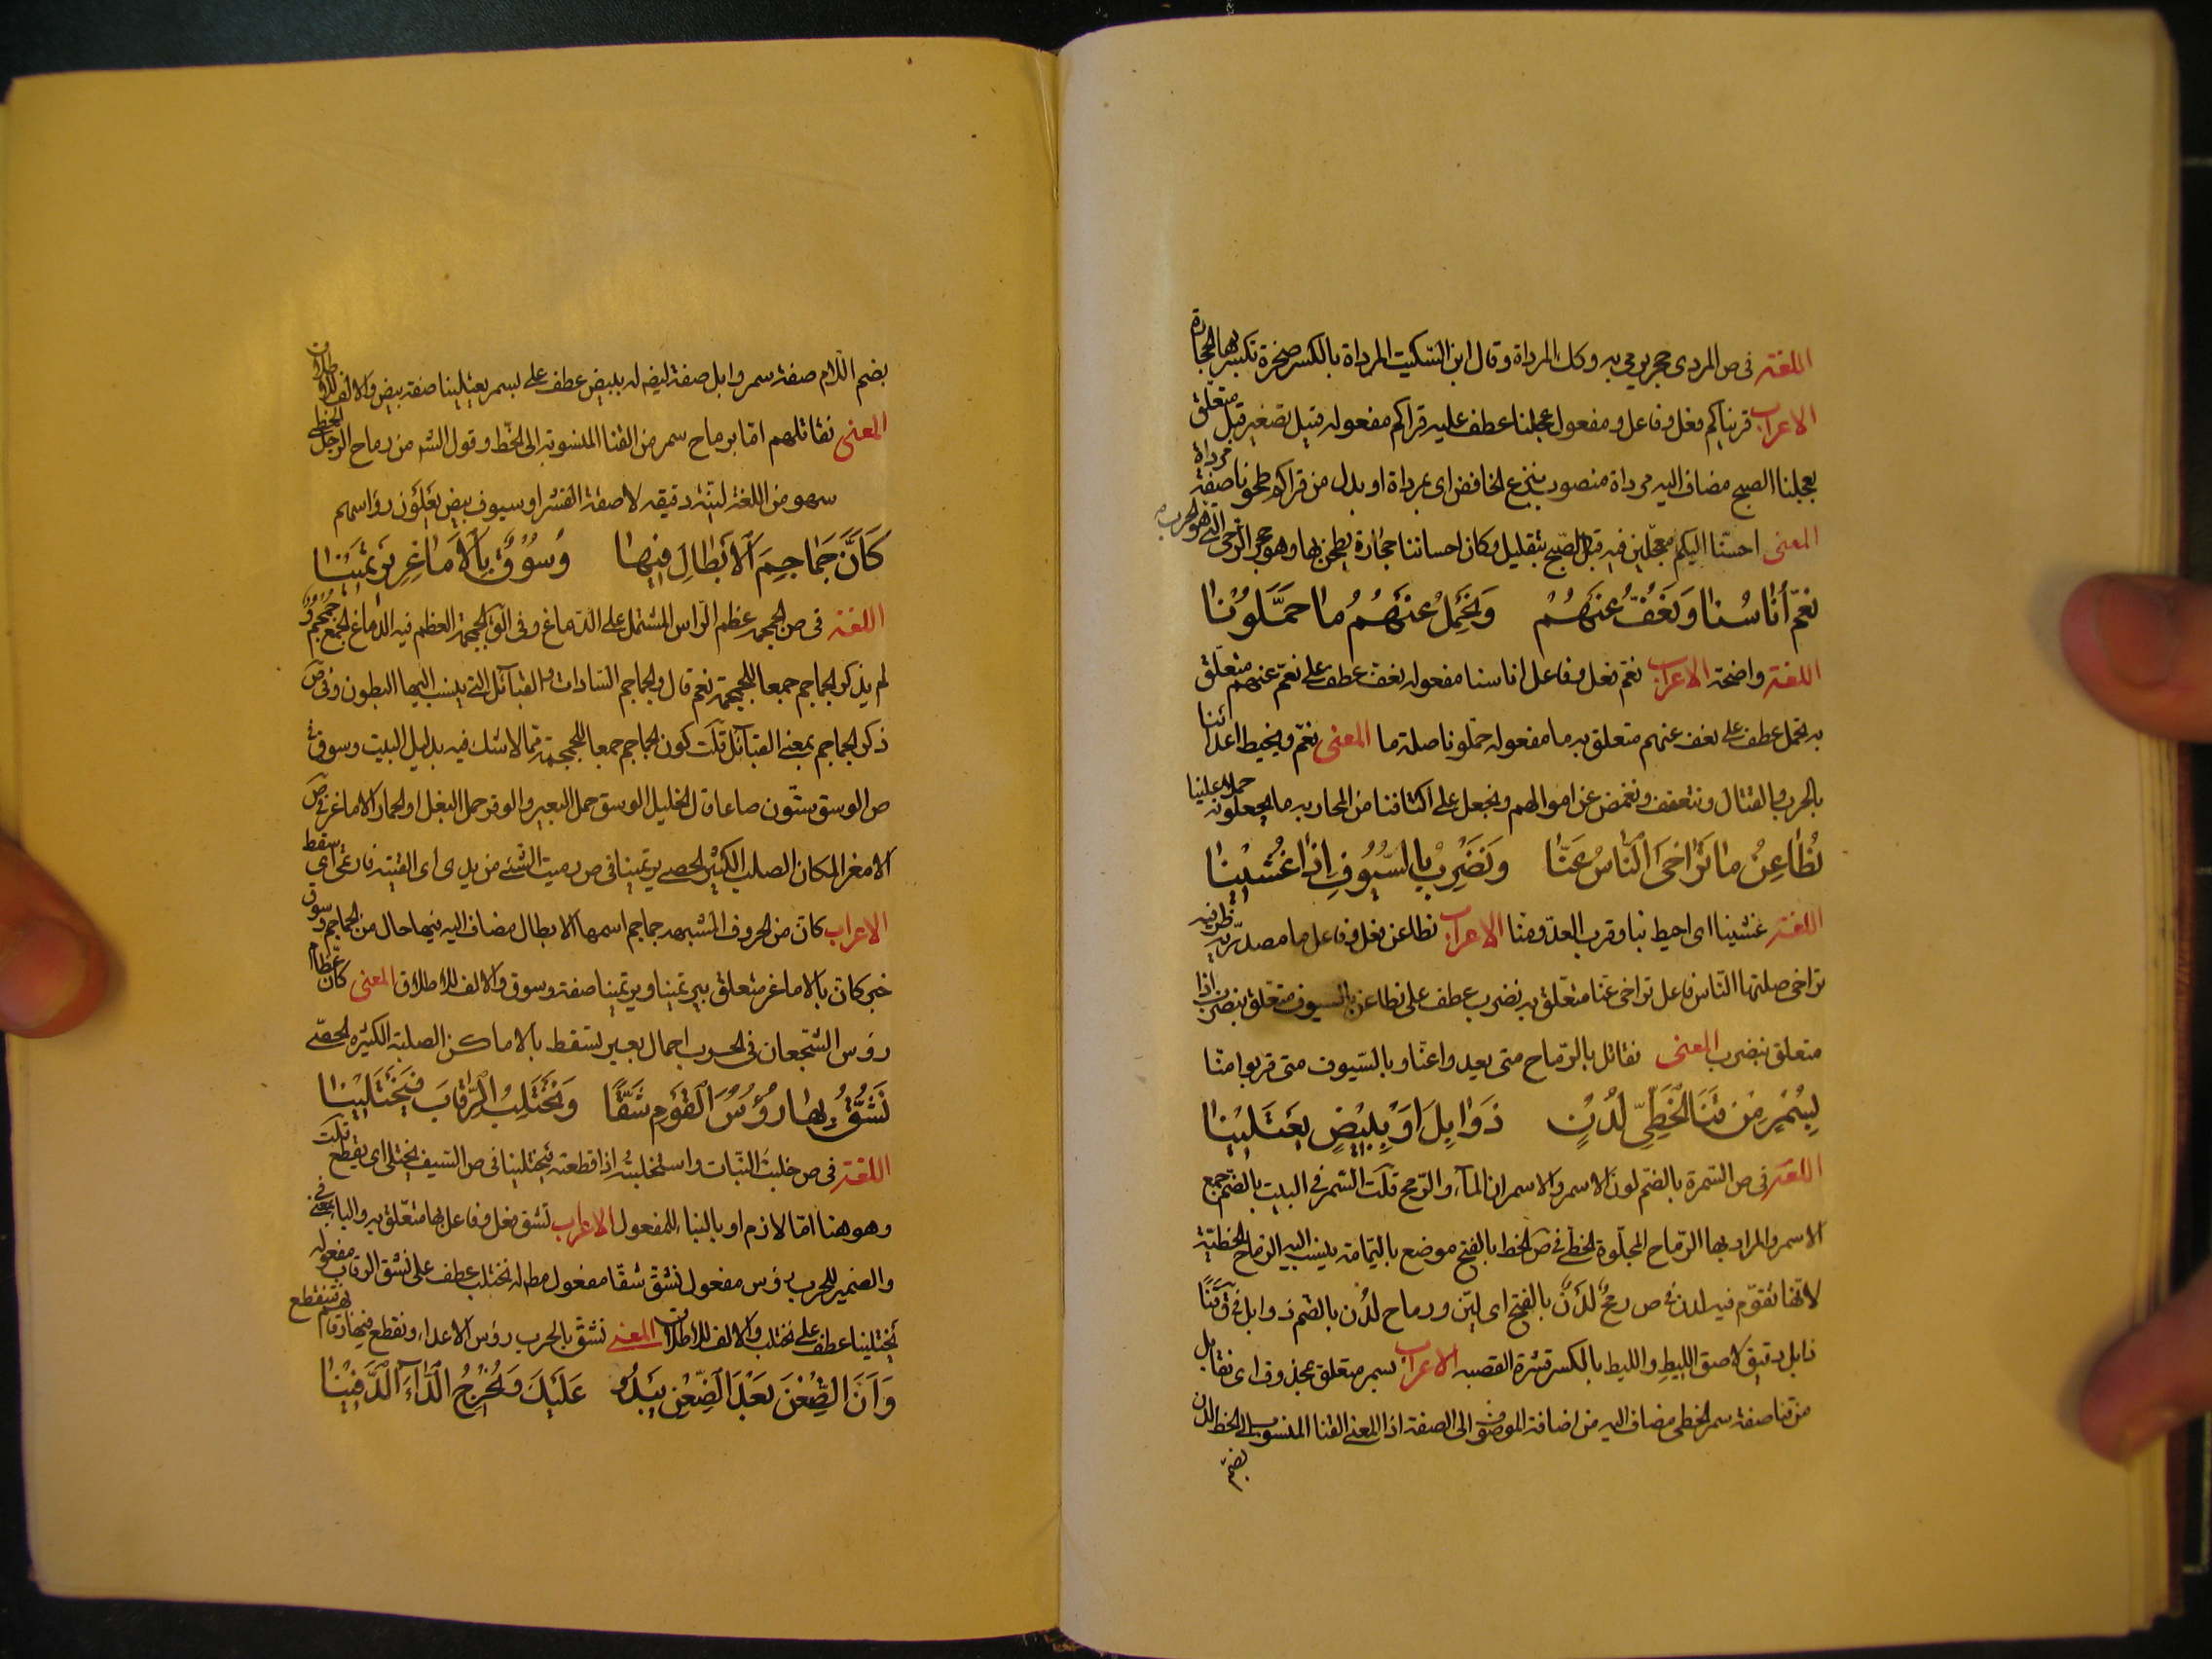 اللغة فى ص المردى حجر يرمى به وكك المرداة وقال ابن السّكيت المرداة بالكسر صخرة تكسر بها الحجارة
الاعراب قريناكم فعل وفاعل ومفعول عجلنا عطف عليه قراكم مفعوله قبيل تصغير قبل متعلّق
بعجلنا الصبح مضاف اليه مرداة منصوب بنزع الخافض اى بمرداة او بدل من قراكم طحونا صفة مرداة
المعنى احسنّا اليكم معجّلين فيه قبل الصّبح بتقليل وكان احساننا حجارة يطحن بها وهو حجر الرّحى التى هو الحرب
نَعُمّ أُناسُنا وَنَعُفُّ عَنهُمْ وَنَحْمِلُ عَنهُمُ ما حَمَّلُونا
اللغة واضحة الاعراب نعمّ فعل وفاعل اناسنا مفعوله نعف عطف على نعمّ عنهم متعلّق
به نحمل عطف على نعف عنهم متعلق به ما مفعوله حملونا صلة ما المعنى نعمّ ويحيط اعدائنا
بالحرب والقتال ونتعفف ونغمض عن اموالهم ونجعل على اكتافنا من المحاربه ما يجعلونه حملا علينا
نُطاعِنُ ما تَراخَى النّاسُ عَنّا وَنَضْرِبُ بِالسُّيُوفِ إذا غُشِيْنا
اللغة غشينا اى احيط بنا وقرب العدوّ منا الاعراب نطاعن فعل وفاعل ما مصدريّه ظرفيه
تراخى صلتها الناس فاعل تراخى عنّا متعلّق به نضرب عطف على نطاعن بالسيوف متعلق بنضرب اذا
متعلق بنضرب المعنى نقاتل بالرّماح متى بعيدوا عنّا وبالسّيوف متى قربوا منّا
بِسُمْرٍ مِنْ قَنَا الْخَطِّىّ لُدْنٍ ذَوابِلَ اَوْ بِبِيْضٍ يَعْتَلِيْنا
اللغة فى ص السّمرة بالضّم لون الاسمر والاسمران المآء والرّمح قلت السّمر فى البيت بالضّم جمع
الاسمر والمراد بها الرّماح المجلّوة الخطى فى ص الخط بالفتح موضع باليمامة ينسب اليه الرّماح الخطيّة
لانّها تقوّم فيه لدن فى ص رمحٌ لَدْنٌ بالفتح اى ليّن ورماح لُدْن بالضّم ذوابل فى ق قنًا
ذابل دقيق لاصق الليطِ والليط بالكسر قشرة القصبه الاعراب سمر متعلق بمحذوف اى نقاتل
من قنا صفة سمر الخطى مضاف اليه من اضافة الموصوف الى الصفة اذ المعنى القنا المنسوب الى الخط لدن
بضمّ
بضم الّلام صفة سمر وابل صفة ايضه له ببيض عطف على بسمر يعتلينا صفة بيض والالف للاطلاق
المعنى نقاتلهم امّا برماح سمر من القنا المنسوبة الى الخّط وقول الشه من رماح الرجل الخطى
سهو من اللغة لينّة دقيقه لاصقة القشر او سيوف بيض يعلون رؤاسهم
كَاَنَّ جَماجِمَ الْاَبْطالِ فِيها وُسُوْقٌ بِالْاَماغِرِ يَرْتَمِيْنا
اللغة فى ص الجمجمه عظم الرّاس المشتمل على الدّماغ وفى الق الجمجمة العظم فيه الدماغ الجمع جمجم و
لم يذكر الجماجم جمعا للجمجمة نعم قال والجماجم السّادات والقبآئل التى ينسب اليها البطون وفى ص
ذكر الجماجم بمعنى القبآئل قلت كون الجماجم جمعا للجمجمة ممّا لا شك فيه بدليل البيت وسوق فى
ص الوسق ستّون صاعا قال الخليل الوسق حمل البعير والوقر حمل البغل او الحمار الاماغز فى ص
الامغر المكان الصلب الكثير الحصى يرتمينا فى ص رميت الشئ من يدى اى القيته فارتمى اى سقط
الاعراب كانّ من الحروف المشبهه جماجم اسمها الابطال مضاف اليه فيها حال من الجماجم وسوق
خبر كانّ بالاماغر متعلق بيرتمينا ويرتمينا صفة وسوق والالف للاطلاق المعنى كانّ عظام
رؤس الشّجعان فى الحرب احمال بعير تسقط بالاماكن الصلبة الكثيره الحصى
نَشُقُّ بِها رُؤُسَ الْقَوْمِ شَقًّا وَنَخْتَلِبُ الرِّقابَ فَيَخْتَلِيْنا
اللغة فى ص خلبتُ النّبات واستخلبتُه اذا قطعته فيختلينا فى ص السّيف يختلى اى يقطع قلت
وهو هنا امّا لازم او بالبناء للمفعول الاعراب نشق فعل وفاعل بها متعّلق به والباء بمعنى فى
والضمير للحرب رؤس مفعول نشقّ شقّا مفعول مطه له نختلب عطف على نشق الرقاب مفعوله
يختلينا عطف على نختلب والالف للاطلاق المعنى نشقّ بالحرب رؤس الاعداء ونقطع فيها رقابهم فتنقطع
وَاَنَّ الضِّغْنَ بَعْدَ الضِّغْنِ يَبْدُو عَلَيْكَ وَيُخْرِجُ الدّآءَ الدَّفِيْنا